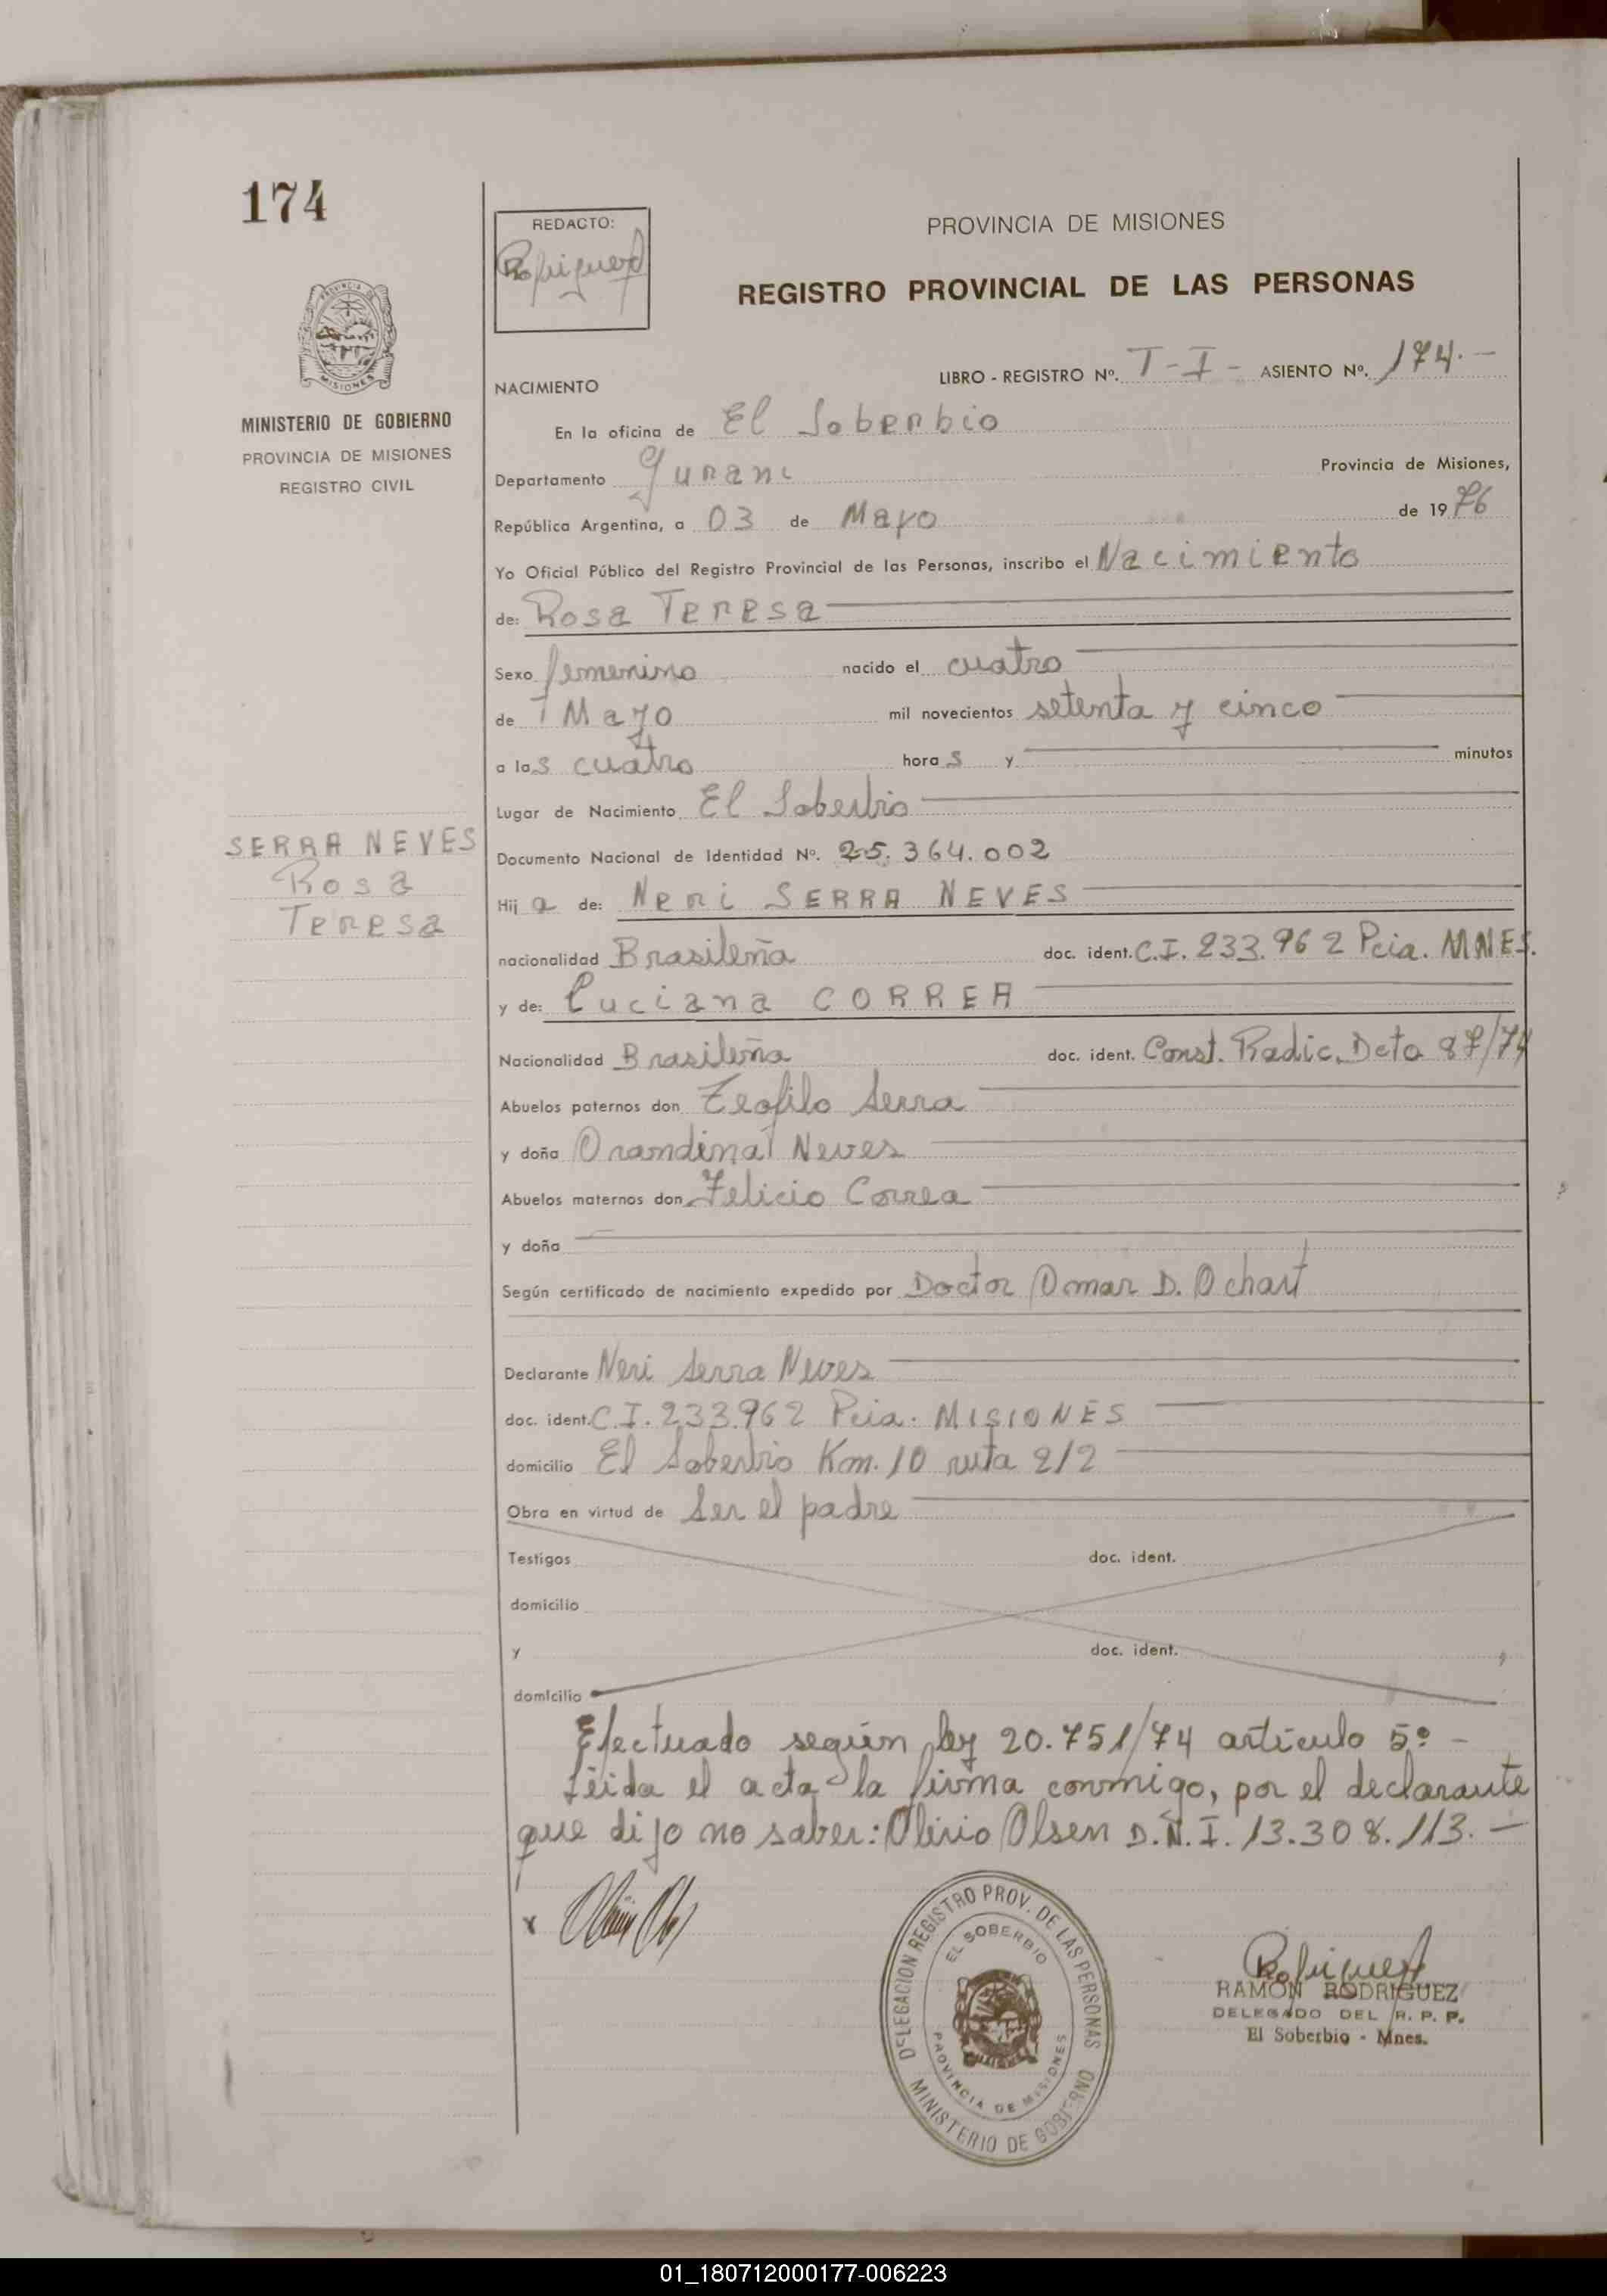 174
REDACTO:
Rodriguez
PROVINCIA DE MISIONES
REGISTRO PROVINCIAL DE LAS PERSONAS
MINISTERIO DE GOBIERNO
PROVINCIA DE MISIONES
REGISTRO CIVIL
NACIMIENTO
LIBRO - REGISTRO Nº. T-I- ASIENTO Nº. 174.-
En la oficina de El Soberbio
Departamento Gurani Provincia de Misiones,
República Argentina, a 03 de Mayo de 1976
Yo Oficial Público del Registro Provincial de las Personas, inscribo el Nacimiento
de: Rosa Teresa
Sexo femenino nacido el cuatro
de Mayo mil novecientos setenta y cinco
a las cuatro horas y minutos
Lugar de Nacimiento El Soberbio
SERRA NEVES
Rosa
Teresa
Documento Nacional de Identidad Nº. 25.364.002
Hija de: Neri SERRA NEVES
nacionalidad Brasileña doc. ident. C.I. 233.962 Pcia. MNES.
y de: Luciana CORREA
Nacionalidad Brasileña doc. ident. Const. Radic. Dcto 87/74
Abuelos paternos don Teofilo Serra
y doña Orandina Neves
Abuelos maternos don Felicio Correa
y doña
Según certificado de nacimiento expedido por Doctor Omar D. Ochart
Declarante Neri Serra Neves
doc. ident. C.I. 233.962 Pcia. MISIONES
domicilio El Soberbio Km. 10 ruta 212
Obra en virtud de Ser el padre
Testigos doc. ident.
domicilio
y doc. ident.
domicilio
Efectuado según ley 20.751/74 artículo 5º -
Leida el acta la firma conmigo, por el declarante
que dijo no saber: Olirio Olsen D.N.I. 13.308.113. -
DELEGACION REGISTRO PROV. DE LAS PERSONAS
EL SOBERBIO
PROVINCIA DE MISIONES
MINISTERIO DE GOBIERNO
Rodriguez
RAMON RODRIGUEZ
DELEGADO DEL R. P. P.
El Soberbio - Mnes.
01_180712000177-006223